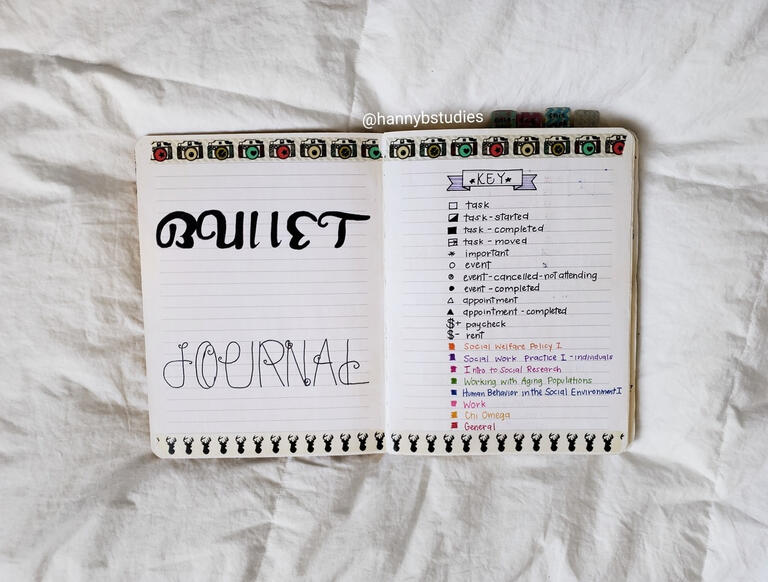 @hannybstudies
BULLET
JOURNAL
KEY
task
task-started
task-completed
task-moved
important
event
event-cancelled-not attending
event-completed
appointment
appointment-completed
$+ paycheck
$- rent
Social Welfare Policy I
Social Work Practice I-individuals
Intro to Social Research
Working with Aging Populations
Human Behavior in the Social Environment I
Work
Chi Omega
General